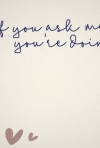 f you ask me
you're doin